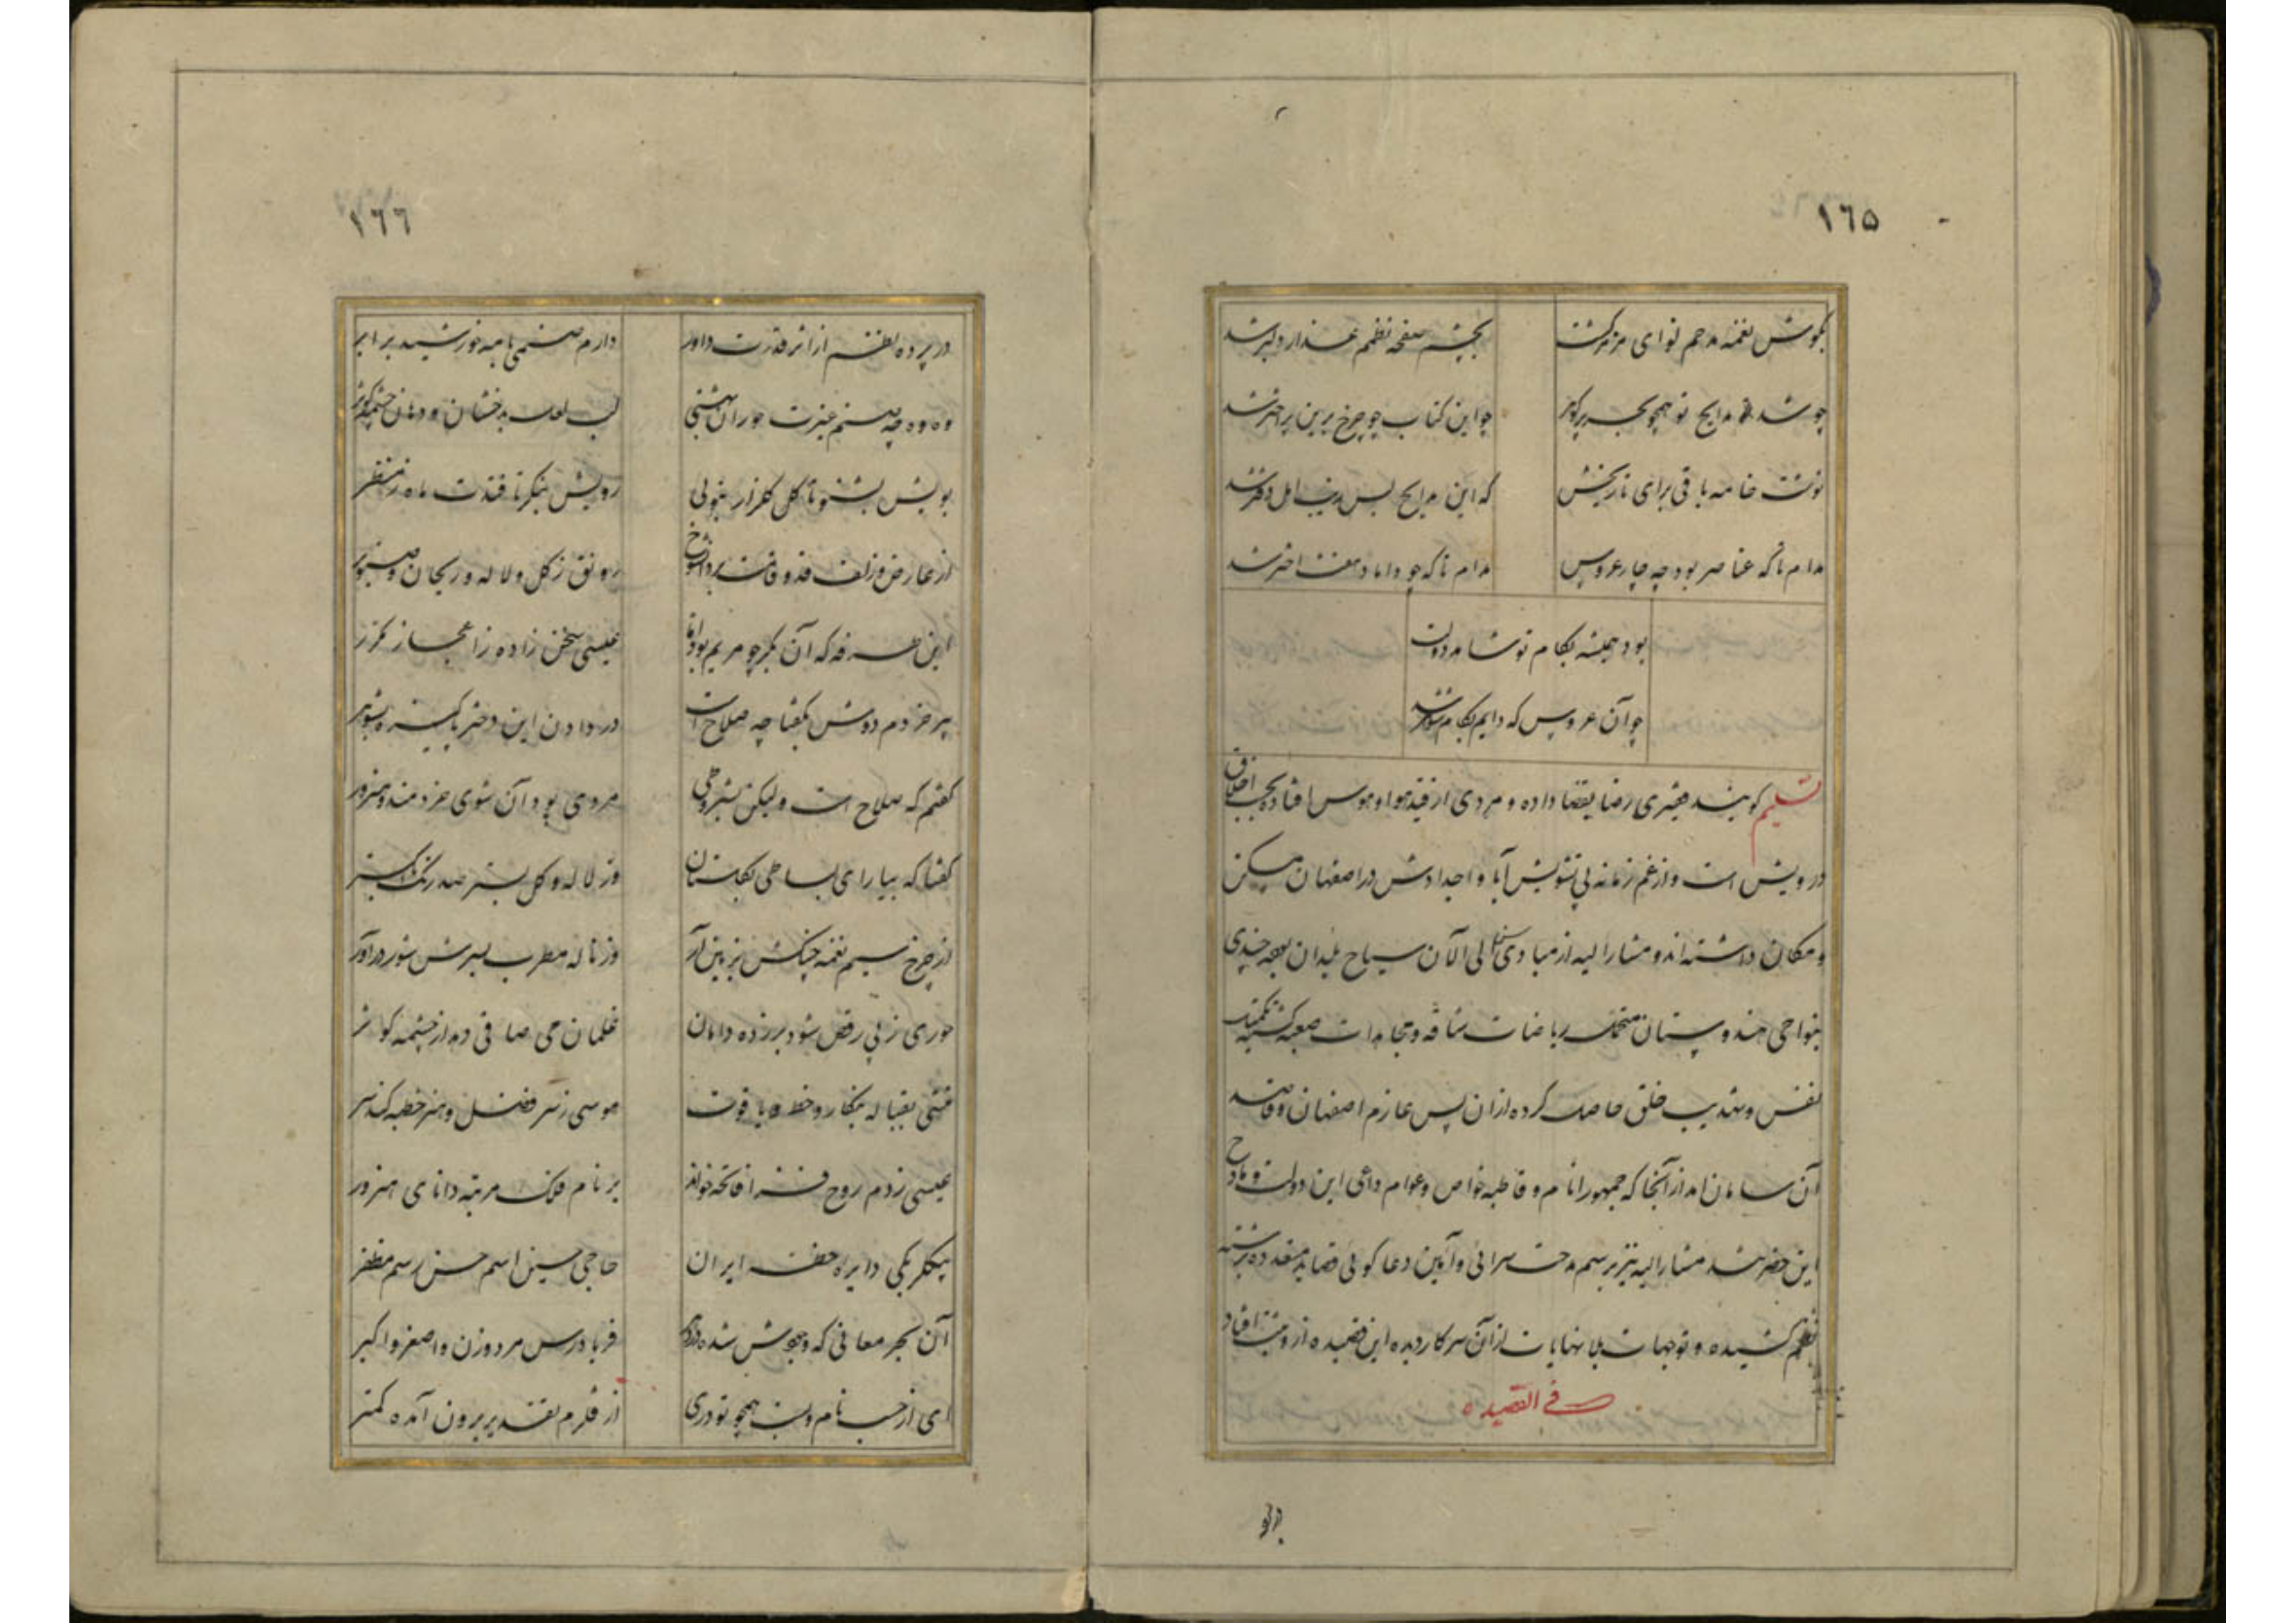 ١٦٥
بگوش نغمه مدحم نوای مزمر گشت بچشم صفحه نظمم عذار دلبر شد
چو شد ز مدایح تو همچو بحر پر گوهر چو این کتاب چو چرخ برین پر اختر شد
نوشت خامه باقی برای تاریخش که این مدایح بس دفتر شد
مدام تا که عناصر بود چه چار عروس مدام تا که چو داماد هفت اختر شد
بود همیشه بکام تو شاهد دولت
چو آن عروس که دایم بکام شوهر شد
تسلیم گویند فقیری رضا بقضا داده و مردی از قید هوا و هوس افتاده بحسب اخلاق
درویش است و از غم زمانه بی تشویش آبا و اجدادش در اصفهان مسکن
و مکان داشته اند و مشارالیه از مبادی سن الی الآن سیاح بلدان بوده چندی
بنواحی هندوستان متحمل ریاضات شاقه و مجاهدات صعبه گشته تکمیل
نفس و تهذیب خلق حاصل کرده از ان پس عازم اصفهان و قاصد
آن سامان آمد از آنجا که جمهور انام و قاطبه خواص و عوام داعی این دولت و مادح
این حضرتند مشارالیه نیز برسم مدحت سرائی و آیین دعا گوئی قصاید متعدده برشته
نظم کشیده و توجهات بلا نهایات از آن سرکار دیده این قصیده از وثبت افتاد
فی القصیده
در پرده
١٦٦
در پرده نظم از اثر قدرت داور دارم صنمی با مه و خورشید برابر
وه وه چه صنم غیرت حوران بهشتی لب لعل بدخشان و دهان چشمه کوثر
بویش بشنو تا گل گلزار نبوئی رویش بنگر تا فتدت ماه ز منظر
از عارض و زلف و قد و قامت رونق ز گل و لاله و ریحان و صنوبر
این طرفه که آن بکر چو مریم بود اما عیسی سخن زاده ز اعجاز مکرر
پیر خردم دوش بگفتا چه صلاح است در دادن این دختر پاکیزه بشوهر
گفتم که صلاح است و لیکن بشروطی مردی بود آن شوی خردمند و هنرور
گفتا که بیارای بساطی بگلستان وز لاله و گل بستر صد رنگ بگستر
از چرخ نسیم نغمه چنگش بزمین آر وز ناله مطرب بسرش شور در آور
حوری ز پی رقص شود بر زده دامان غلمان می صافی دهد از چشمه کوثر
منشی بقباله بنگارد خط یاقوت موسی ز سر فضل و هنر خطبه کند سر
عیسی ز دم روح فاتحه خواند بر نام فلک مرتبه دانای هنرور
بیگلربیگی دایره خطه ایران حاجی حسین اسم حسن رسم مظفر
آن بحر معانی که وجودش شده فریاد رس مرد و زن و اصغر و اکبر
ای از حسب نام و نسب همچو تو دری از قلزم تقدیر برون آمده کمتر